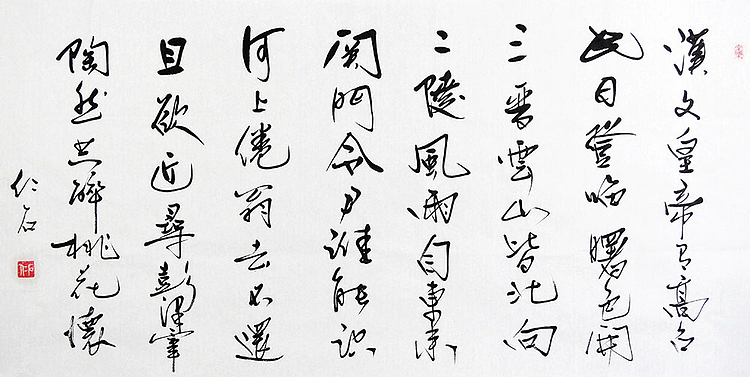 漢文皇帝有高台
此日登臨曙色開
三晉雲山皆北向
二陵風雨自東來
關門令尹誰能識
河上僊翁去不還
且欲近尋彭澤宰
陶然共醉桃花懷
仁石